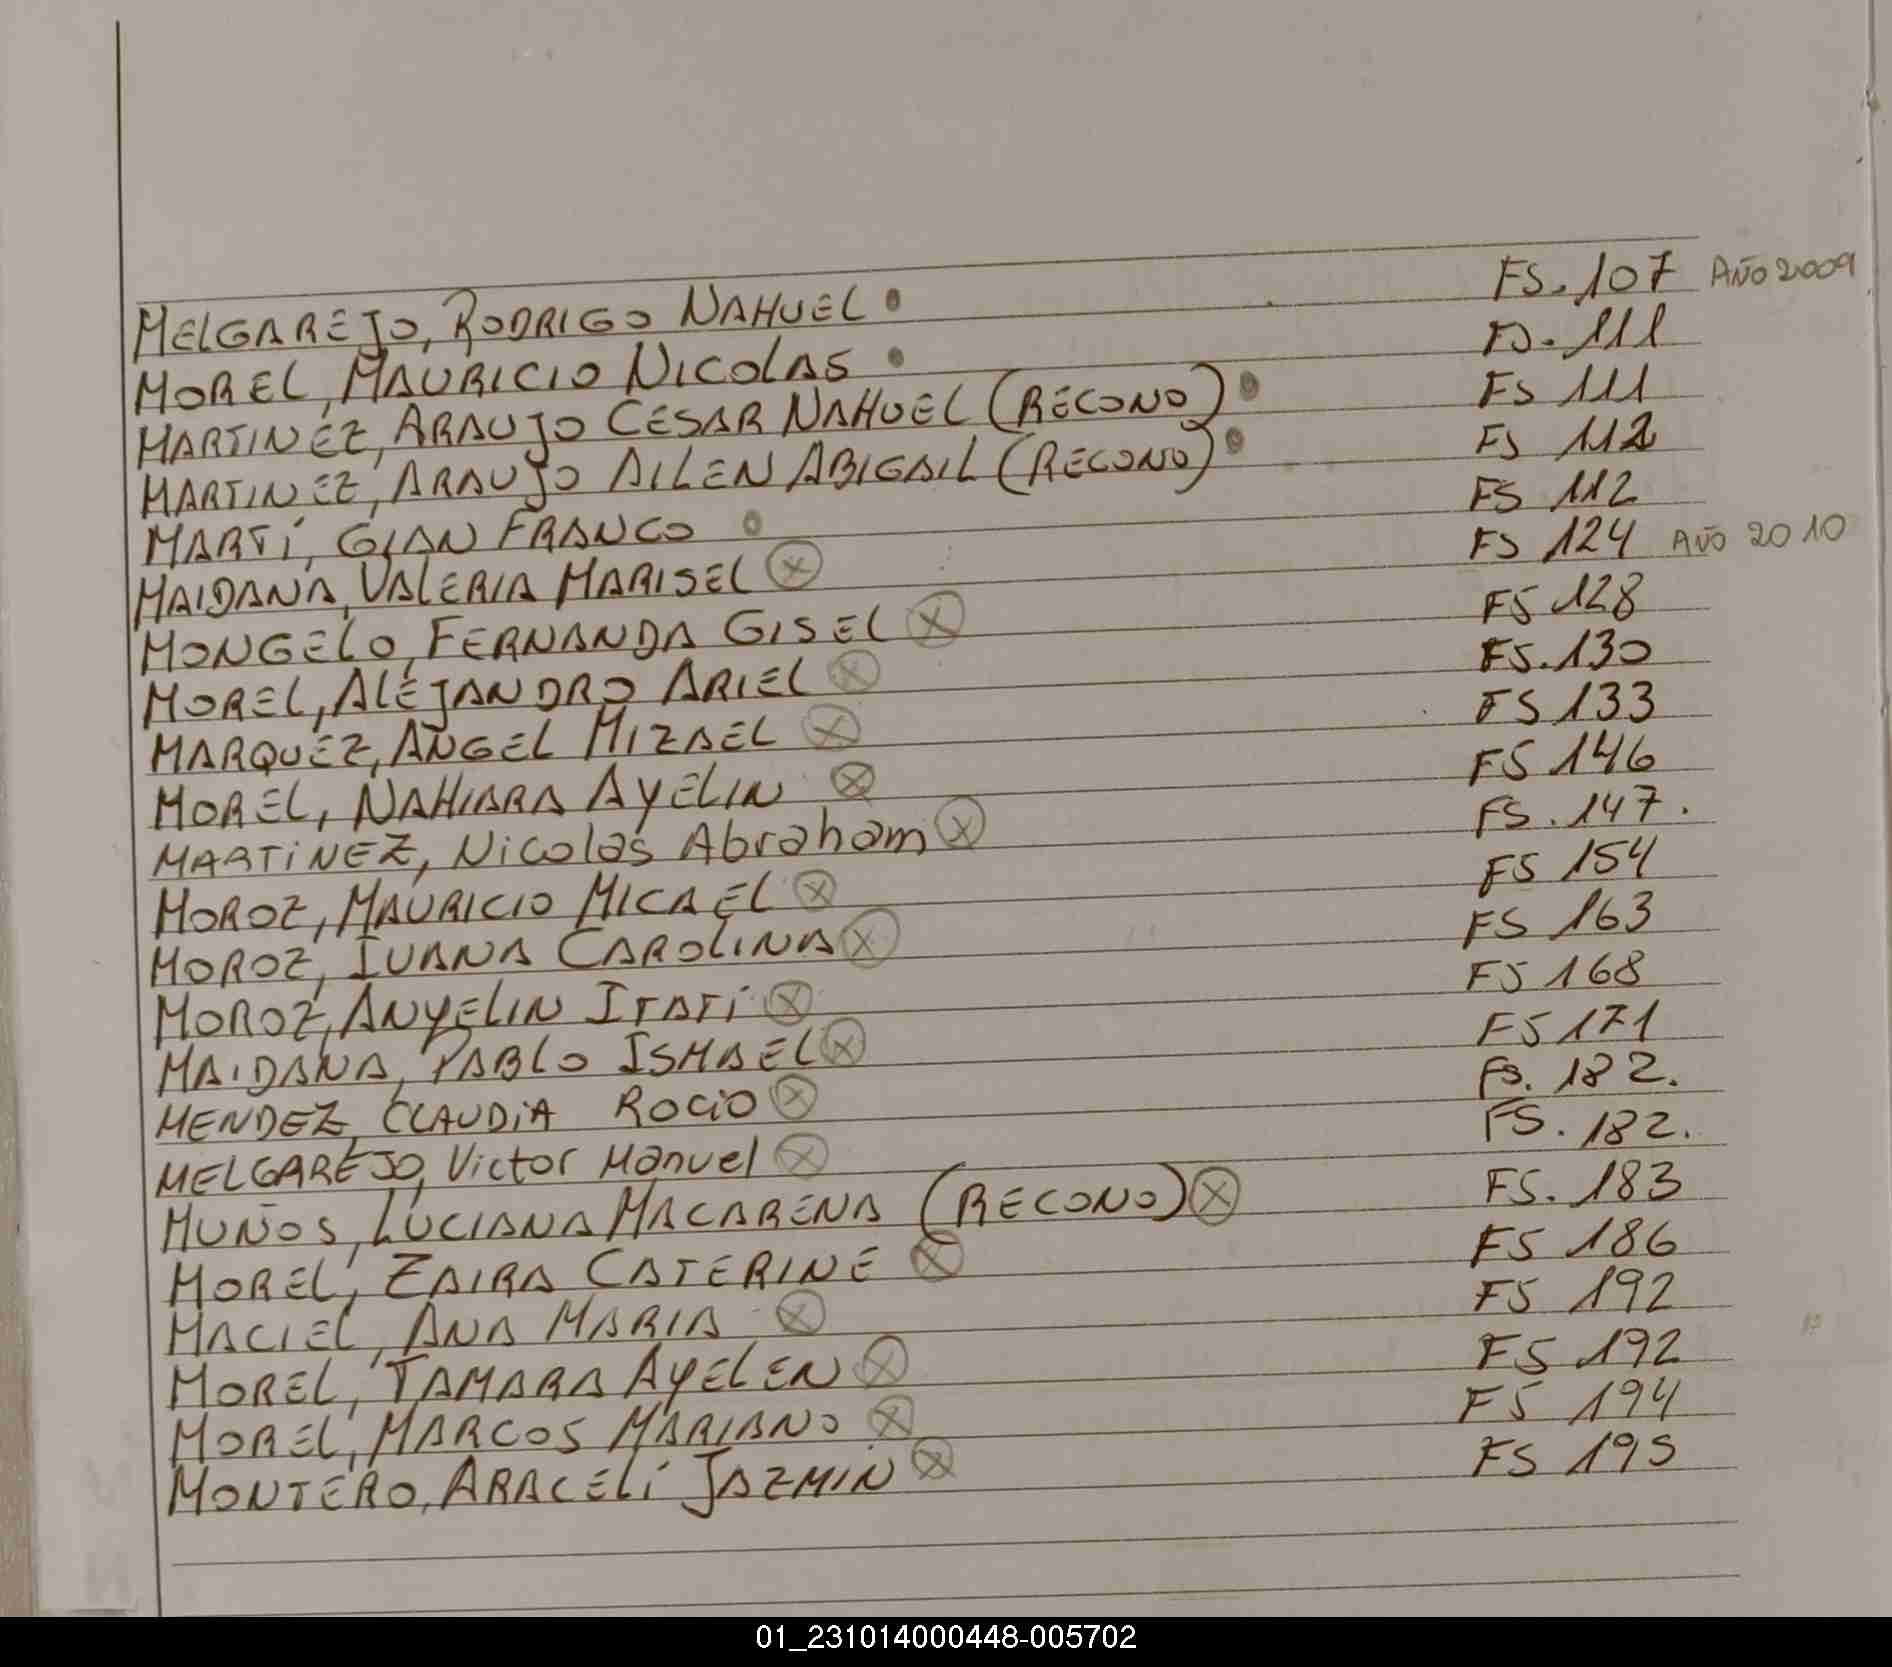 MELGAREJO, RODRIGO NAHUEL FS. 107 AÑO 2009
MOREL, MAURICIO NICOLAS FS. 111
MARTINEZ, ARAUJO CESAR NAHUEL (RECONO) FS 111
MARTINEZ, ARAUJO AILEN ABIGAIL (RECONO) FS 112
MARTÍ, GIAN FRANCO FS 112
MAIDANA, VALERIA MARISEL FS 124 AÑO 2010
MONGELO, FERNANDA GISEL FS 128
MOREL, ALEJANDRO ARIEL FS. 130
MARQUEZ, ANGEL MIZAEL FS 133
MOREL, NAHIARA AYELIN FS 146
MARTINEZ, Nicolas Abraham FS. 147.
MOROZ, MAURICIO MICAEL FS 154
MOROZ, IVANA CAROLINA FS 163
MOROZ, ANYELIN ITATÍ FS 168
MAIDANA, PABLO ISMAEL FS 171
MENDEZ, CLAUDIA ROCIO FS. 182.
MELGAREJO, Victor Manuel FS. 182.
MUÑOS, LUCIANA MACARENA (RECONO) FS. 183
MOREL, ZAIRA CATERINE FS 186
MACIEL, ANA MARIA FS 192
MOREL, TAMARA AYELEN FS 192
MOREL, MARCOS MARIANO FS 194
MONTERO, ARACELÍ JAZMIN FS 195
01_231014000448-005702